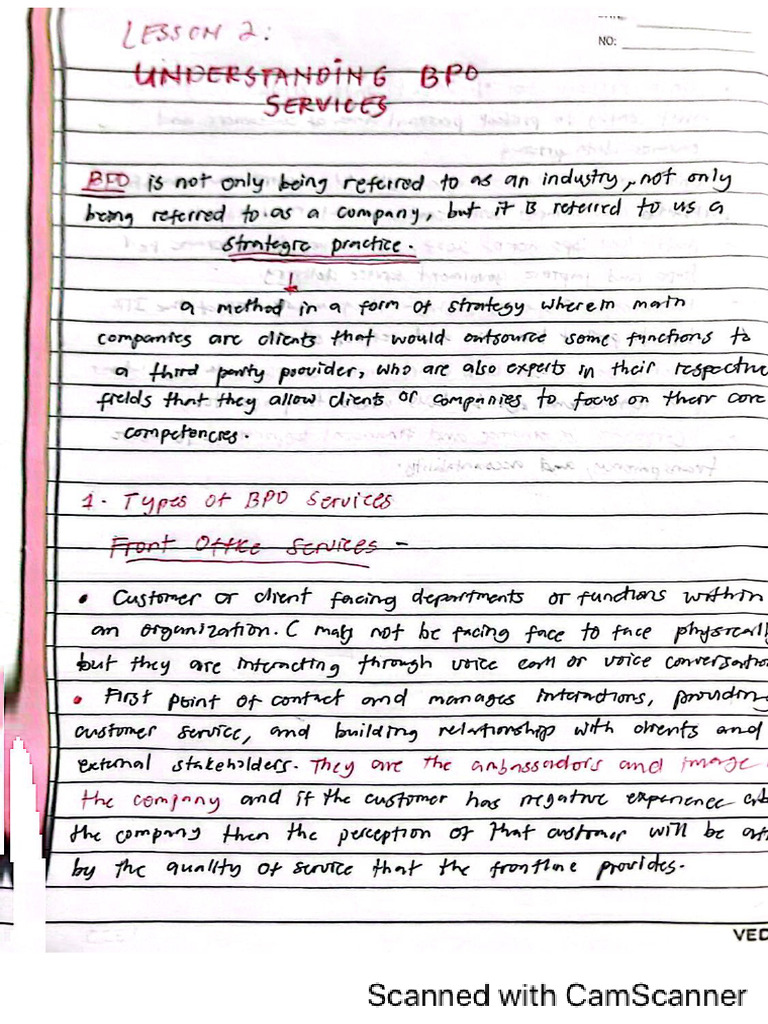 LESSON 2:
NO:
UNDERSTANDING BPO
SERVICES
BPO is not only being referred to as an industry, not only
being referred to as a company, but it is referred to us a
strategic practice.
a method in a form of strategy wherein main
companies are clients that would outsource some functions to
a third party provider, who are also experts in their respective
fields that they allow clients or companies to focus on their core
competencies.
1. Types of BPO Services
Front Office Services -
• Customer or client facing departments or functions within
an organization. C may not be facing face to face physically
but they are interacting through voice call or voice conversation
• First point of contact and manages interactions, providing
customer service, and building relationship with clients and
external stakeholders. They are the ambassadors and image
the company and if the customer has negative experience
the company then the perception of that customer will be
by the quality of service that the frontline provides.
VED
Scanned with CamScanner